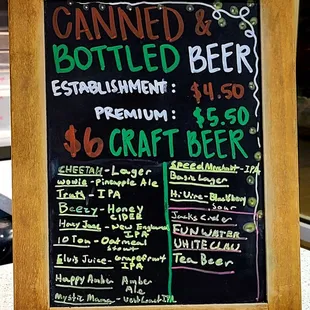 CANNED &
BOTTLED BEER
ESTABLISHMENT: $4.50
PREMIUM: $5.50
$6 CRAFT BEER
CHEETAH - Lager
Wowie - Pineapple Ale
Truth - IPA
Beezy - Honey
CIDER
Hazy Jane - New England
IPA
10 Ton - Oatmeal
Stout
Elvis Juice - Grapefruit
IPA
Happy Amber Amber
Ale
Mystic Mama - West Coast IPA
Speed Merchant - IPA
Basic Lager
Blueberry
Sour
Jacks Cider
FUN WATER
WHITE CLAW
Tea Beer